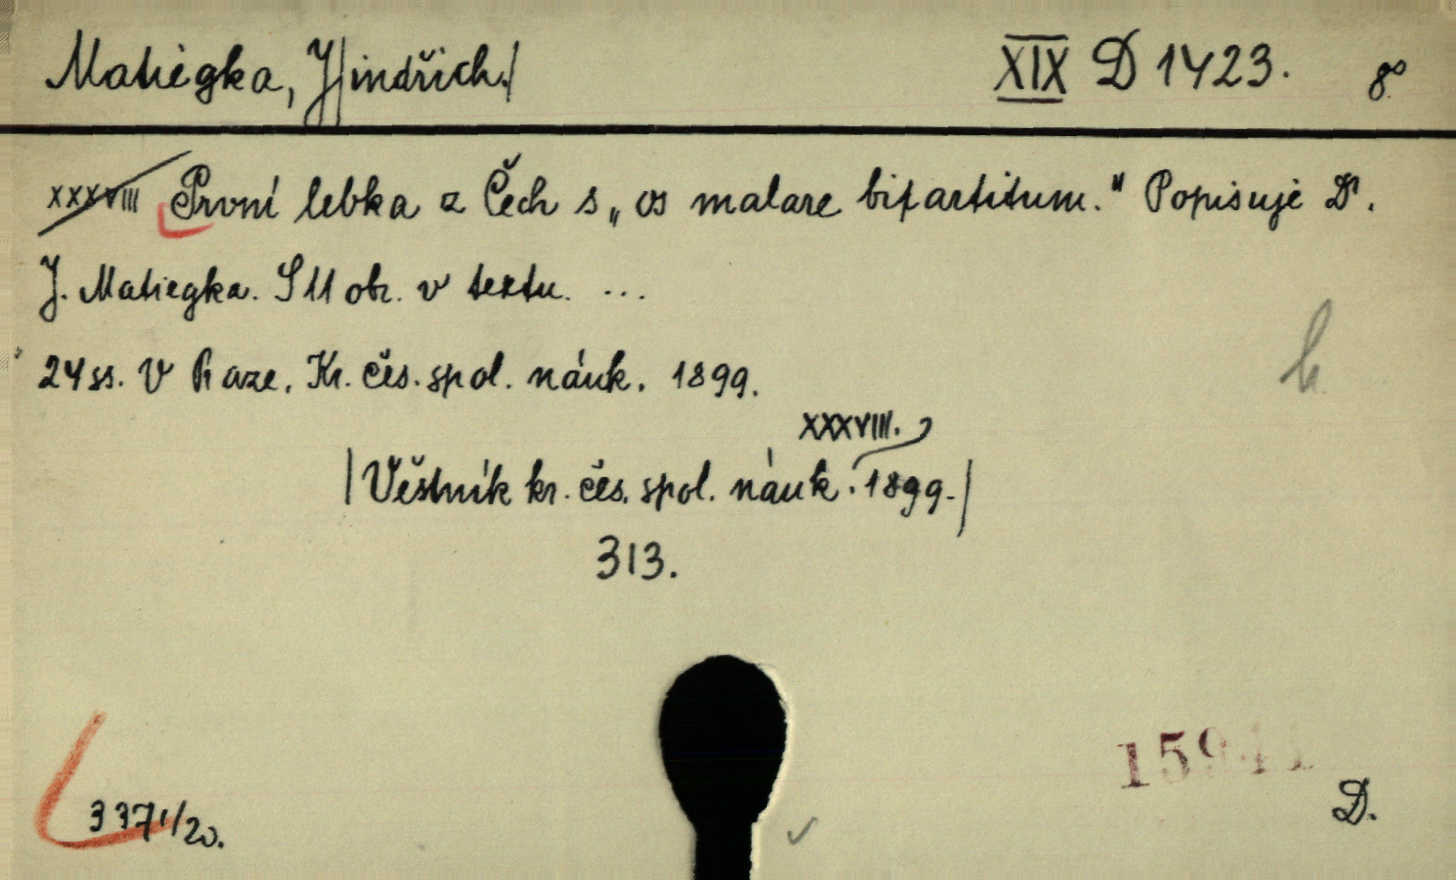 Matiegka, J/indřich./ XIX D 1423. 8°
XXXVIII První lebka z Čech s „os malare bipartitum." Popisuje Dr.
J. Matiegka. S 11 obr. v textu. ...
24 ss. V Praze, Kr. čes. spol. náuk. 1899.
XXXVIII.
/Věstník kr. čes. spol. náuk. 1899./
313.
15941
D.